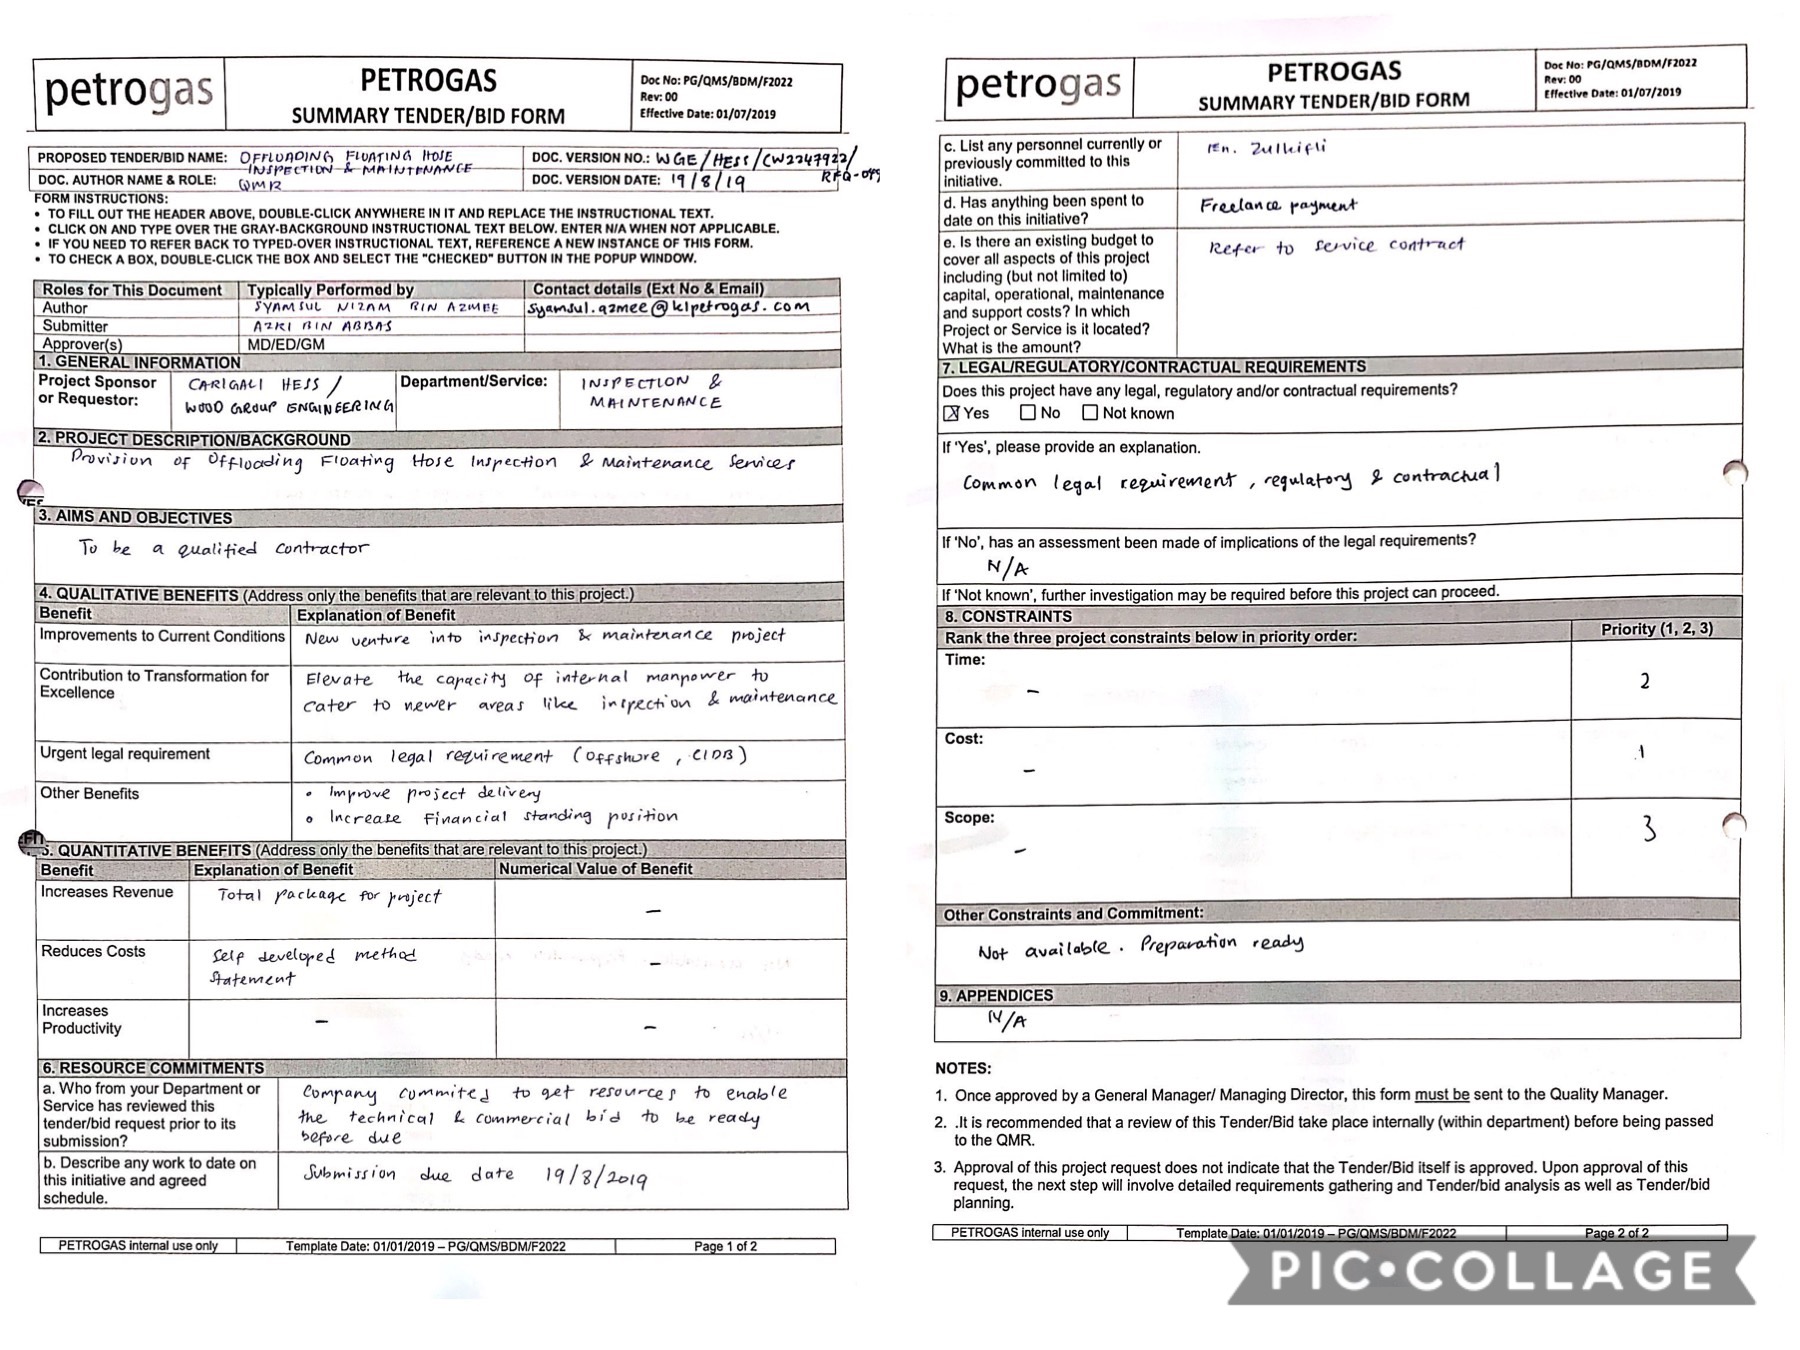 petrogas
PETROGAS
SUMMARY TENDER/BID FORM
Doc No: PG/QMS/BDM/F2022
Rev: 00
Effective Date: 01/07/2019
PROPOSED TENDER/BID NAME: OFFLOADING FLOATING HOSE
INSPECTION & MAINTENANCE
DOC. VERSION NO.: WGE/HESS/CW2247922/
DOC. AUTHOR NAME & ROLE: QMR
DOC. VERSION DATE: 19/8/19
FORM INSTRUCTIONS:
• TO FILL OUT THE HEADER ABOVE, DOUBLE-CLICK ANYWHERE IN IT AND REPLACE THE INSTRUCTIONAL TEXT.
• CLICK ON AND TYPE OVER THE GRAY-BACKGROUND INSTRUCTIONAL TEXT BELOW. ENTER N/A WHEN NOT APPLICABLE.
• IF YOU NEED TO REFER BACK TO TYPED-OVER INSTRUCTIONAL TEXT, REFERENCE A NEW INSTANCE OF THIS FORM.
• TO CHECK A BOX, DOUBLE-CLICK THE BOX AND SELECT THE "CHECKED" BUTTON IN THE POPUP WINDOW.
Roles for This Document Typically Performed by Contact details (Ext No & Email)
Author SYAMSUL NIZAM BIN AZMEE syamsul.azmee@klpetrogas.com
Submitter AZRI BIN ABBAS
Approver(s) MD/ED/GM
1. GENERAL INFORMATION
Project Sponsor
or Requestor:
CARIGALI HESS /
WOOD GROUP ENGINEERING
Department/Service:
INSPECTION &
MAINTENANCE
2. PROJECT DESCRIPTION/BACKGROUND
Provision of Offloading Floating Hose Inspection & Maintenance Services
3. AIMS AND OBJECTIVES
To be a qualified contractor
4. QUALITATIVE BENEFITS (Address only the benefits that are relevant to this project.)
Benefit Explanation of Benefit
Improvements to Current Conditions New venture into inspection & maintenance project
Contribution to Transformation for
Excellence
Elevate the capacity of internal manpower to
cater to newer areas like inspection & maintenance
Urgent legal requirement Common legal requirement (Offshore, CIDB)
Other Benefits
• Improve project delivery
• Increase Financial standing position
5. QUANTITATIVE BENEFITS (Address only the benefits that are relevant to this project.)
Benefit Explanation of Benefit Numerical Value of Benefit
Increases Revenue Total package for project –
Reduces Costs
Self developed method
statement
–
Increases
Productivity
–
–
6. RESOURCE COMMITMENTS
a. Who from your Department or
Service has reviewed this
tender/bid request prior to its
submission?
Company commited to get resources to enable
the technical & commercial bid to be ready
before due
b. Describe any work to date on
this initiative and agreed
schedule.
Submission due date 19/8/2019
PETROGAS internal use only Template Date: 01/01/2019 – PG/QMS/BDM/F2022 Page 1 of 2
petrogas
PETROGAS
SUMMARY TENDER/BID FORM
Doc No: PG/QMS/BDM/F2022
Rev: 00
Effective Date: 01/07/2019
c. List any personnel currently or
previously committed to this
initiative.
En. Zulkifli
d. Has anything been spent to
date on this initiative?
Freelance payment
e. Is there an existing budget to
cover all aspects of this project
including (but not limited to)
capital, operational, maintenance
and support costs? In which
Project or Service is it located?
What is the amount?
Refer to service contract
7. LEGAL/REGULATORY/CONTRACTUAL REQUIREMENTS
Does this project have any legal, regulatory and/or contractual requirements?
☒ Yes ☐ No ☐ Not known
If 'Yes', please provide an explanation.
Common legal requirement, regulatory & contractual
If 'No', has an assessment been made of implications of the legal requirements?
N/A
If 'Not known', further investigation may be required before this project can proceed.
8. CONSTRAINTS
Rank the three project constraints below in priority order: Priority (1, 2, 3)
Time:
– 2
Cost:
– 1
Scope:
– 3
Other Constraints and Commitment:
Not available. Preparation ready
9. APPENDICES
N/A
NOTES:
1. Once approved by a General Manager/ Managing Director, this form must be sent to the Quality Manager.
2. .It is recommended that a review of this Tender/Bid take place internally (within department) before being passed
to the QMR.
3. Approval of this project request does not indicate that the Tender/Bid itself is approved. Upon approval of this
request, the next step will involve detailed requirements gathering and Tender/bid analysis as well as Tender/bid
planning.
PETROGAS internal use only Template Date: 01/01/2019 – PG/QMS/BDM/F2022 Page 2 of 2
PIC•COLLAGE